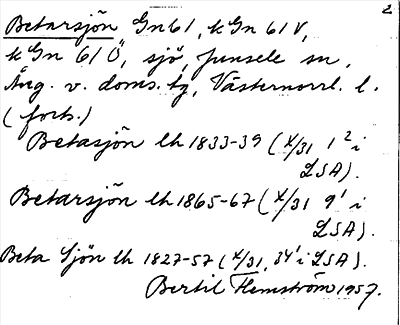 2
Betarsjön Gn 61, k Gn 61 V,
k Gn 61 Ö, sjö, Junsele sn,
Ång. v. doms. tg, Västernorrl. l.
(forts.)
Betasjön lh 1833-39 (X/31 1² i
LSA).
Betarsjön lh 1865-67 (X/31 9¹ i
LSA).
Beta Sjön lh 1827-57 (X/31, 34¹ i LSA).
Bertil Flemström 1957.